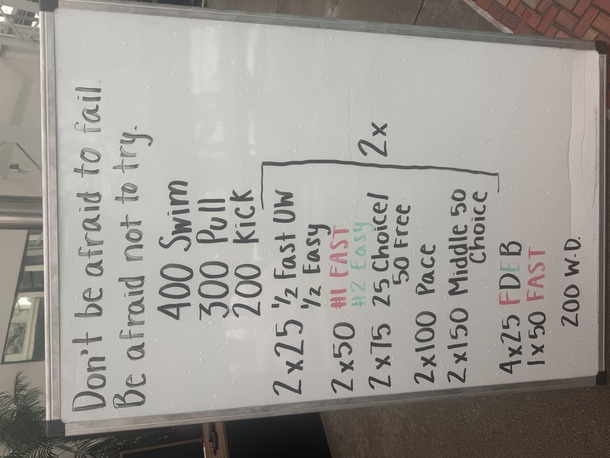 Don't be afraid to fail.
Be afraid not to try.
400 Swim
300 Pull
200 Kick
2x25 1/2 Fast UW
1/2 Easy
2x50 #1 FAST
#2 Easy
2x75 25 Choice/
50 Free
2x100 Pace
2x150 Middle 50
Choice
2x
4x25 FDEB
1x50 FAST
200 W.D.